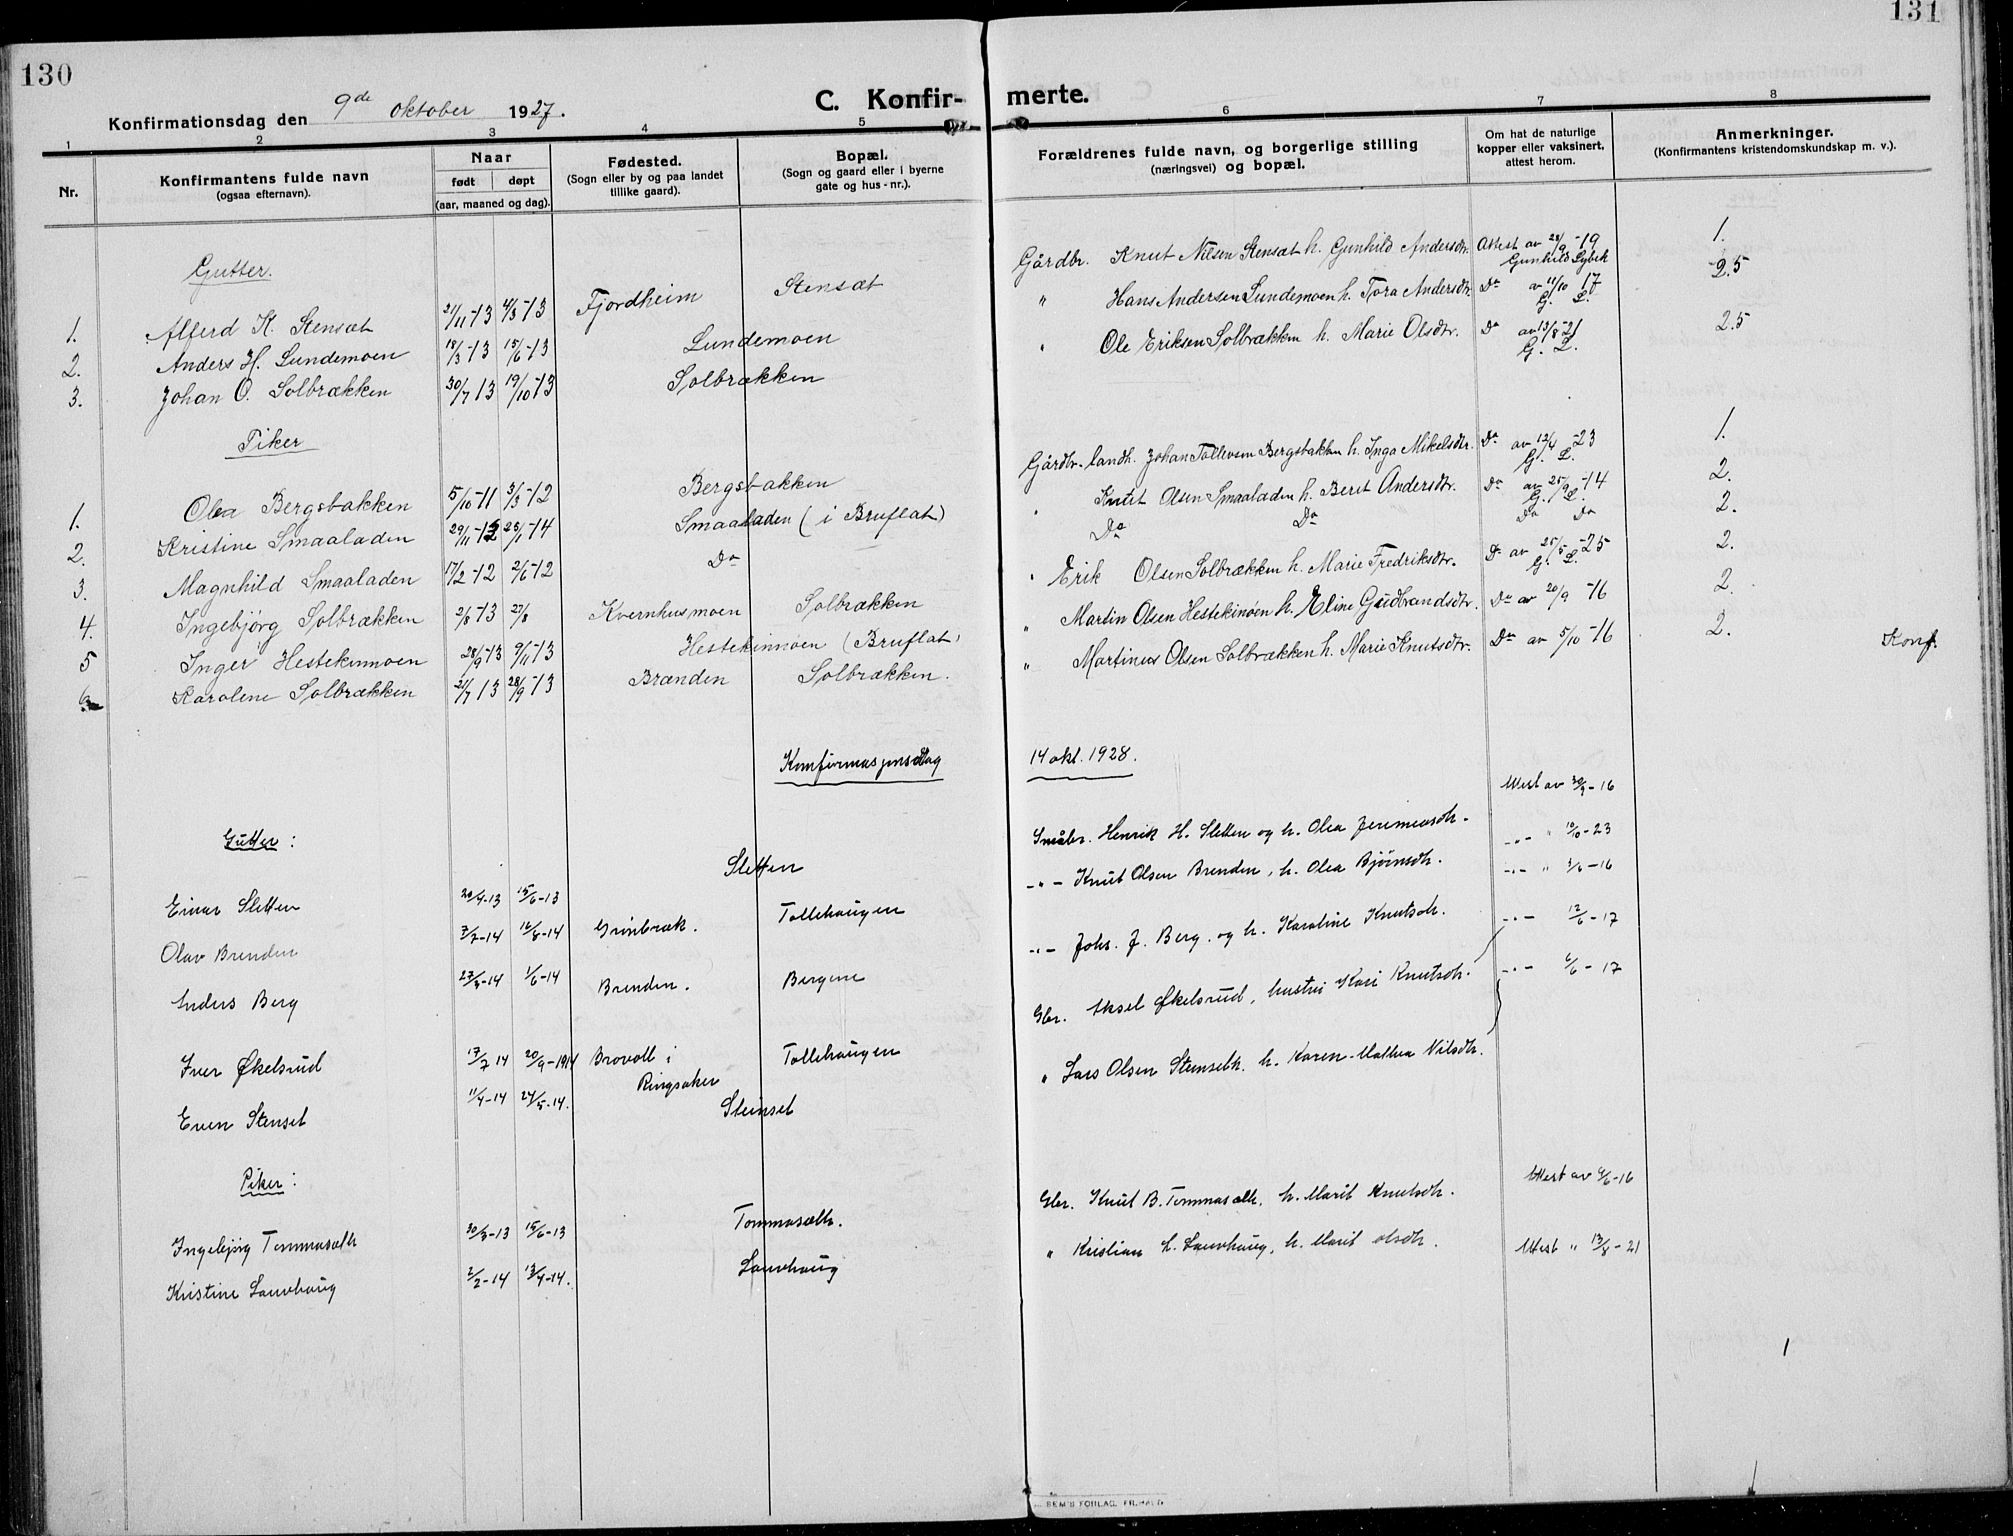 130
131
Konfirmationsdag den 9de oktober 1927.
C. Konfir- merte.
1 2 3 4 5 6 7 8
Nr.
Konfirmantens fulde navn
(ogsaa efternavn).
Naar
født døpt
(aar, maaned og dag).
Fødested.
(Sogn eller by og paa landet
tillike gaard).
Bopæl.
(Sogn og gaard eller i byerne
gate og hus-nr.).
Forældrenes fulde navn, og borgerlige stilling
(næringsvei) og bopæl.
Om hat de naturlige
kopper eller vaksinert,
attest herom.
Anmerkninger.
(Konfirmantens kristendomskundskap m. v.).
Gutter.
1. Alferd K. Stensæt 21/11-13 4/3-13 Fjordheim Stensæt Gårdbr. Knut Nilsen Stensæt h. Gunhild Andersdtr. Attest av 28/9-19 Gunhild Lybek 1.
2. Anders H. Lundemoen 18/3-13 15/6-13 Lundemoen " Hans Andersen Lundemoen h. Tora Andersdtr. Do av 11/10 17 G. L. 2.5
3. Johan O. Solbrækken 30/7 13 19/10-13 Solbrækken " Ole Eriksen Solbrækken h. Marie Olsdtr. Do av 13/8-21 G. L. 2.5
Piker
1. Olea Bergsbakken 5/10-11 3/3-12 Bergsbakken Gårdbr. landh. Johan Tollevsen Bergsbakken h. Inga Mikelsdtr. Do av 12/4-23 G. L. 1.
2. Kristine Smaaladen 29/11-13 25/1-14 Smaaladen (i Bruflat) " Knut Olsen Smaaladen h. Berit Andersdtr. Do av 25/9-14 G. L. 2.
3. Magnhild Smaaladen 17/2-12 2/6-12 Do Do Do Do Do 2.
4. Ingebjørg Solbrækken 2/8-13 27/8 Kvernhusmoen Solbrækken " Erik Olsen Solbrækken h. Marie Fredriksdtr. Do av 25/5-25 G. L. 2.
5 Inger Hestekinmoen 28/9-13 9/11-13 Hestekinmoen (Bruflat) " Martin Olsen Hestekinøen h. Eline Gudbrandsdtr. Do av 20/9-16 2.
6 Karolene Solbrækken 21/7 13 28/9-13 Brænden Solbrækken. " Martinus Olsen Solbrækken h. Marie Knutsdtr. Do av 5/10-16 2. Konf.
Konfirmasjonsdag 14 okt. 1928.
Gutter:
Einar Sletten 20/4-13 15/6-13 Sletten Småbr. Henrik H. Sletten og h. Olea Jerimiasdtr. Attest av 30/9-16
Olav Brenden 7/7-14 16/8-14 Grinbræk. Tollehaugen -"- Knut Olsen Brenden, h. Olea Bjørnsdtr. -"- " 10/10-23
Anders Berg 27/3-14 1/6-14 Brenden. Bergene -"- Johs. J. Berg. og h. Karoline Knutsdtr. -"- "
Iver Økelsrud 17/7 14 20/9-1914 Brovoll i Ringsaker Tollehaugen Gbr. Aksel Økelsrud, hustru Kari Knutsdtr. -"- 12/6-17
Even Stenset 11/4-14 24/5-14. Steinset " Lars Olsen Stenseth. h. Karen-Mathea Nilsdtr. -"- 6/6-17
Piker:
Ingebjørg Tommasæth 30/3-13 15/6-13 Tommasæth. Gbr. Knut B. Tommasæth. h. Marit Knutsdtr. Attest av 6/6-16
Kristine Lauvhaug 2/2-14 13/4-14. Lauvhaug " Kristian L. Lauvhaug, h. Marit Olsdtr. Attest " 13/8-21
SEM'S FORLAG. FR.HALD